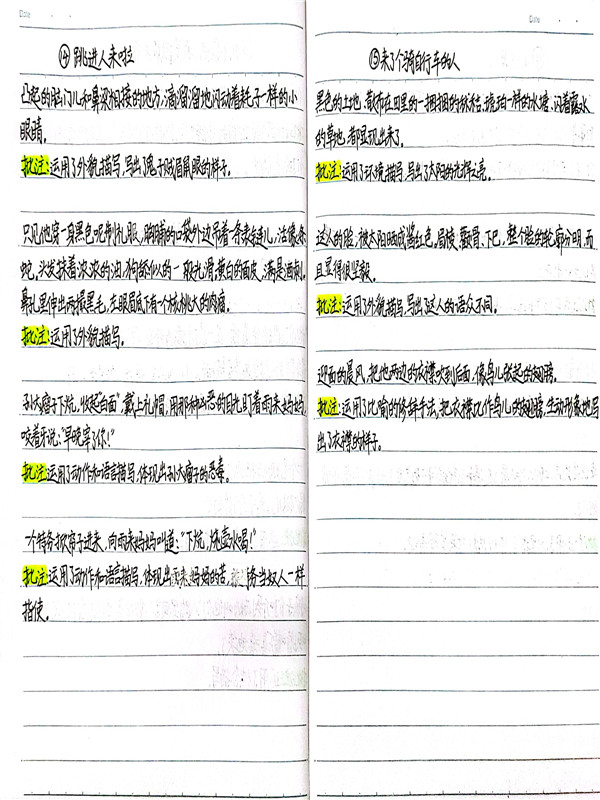 Date
⑭跳进人来啦
凸起的脑门儿和鼻梁相接的地方,滴溜溜地闪动着耗子一样的小
眼睛。
批注:运用了外貌描写,写出了鬼子贼眉鼠眼的样子。
只见他穿一身黑色呢制礼服,胸脯的口袋外边吊着一条表链儿,活像条
蛇,头发抹着浓浓的油,狗舔似的一般光滑,黄白的面皮,满是油腻。
鼻孔里伸出两撮黑毛,左眼眉底下有个核桃大的肉瘤。
批注:运用了外貌描写。
孙大瘤子下炕,收起"白面",戴上礼帽,用那种凶恶的目光盯着雨来妈妈,
咬着牙说:"早晚宰了你!"
批注:运用了动作和语言描写,体现出孙大瘤子的恶毒。
一个特务掀帘子进来,向雨来妈妈叫道:"下炕,烧壶水喝!"
批注:运用了动作和语言描写,体现出雨来妈妈的苦,被 务当奴人一样
指使。
Date
⑮来了个骑自行车的人
黑色的土地,散布在田里的一捆捆的秫秸,琥珀一样的水塘,闪着露水
的草地,都显现出来了。
批注:运用了环境描写,写出了太阳的光辉之亮。
这人的脸,被太阳晒成酱红色。眉棱、颧骨、下巴,整个脸的轮廓分明,而
且显得很坚毅。
批注:运用了外貌描写,写出了这人的与众不同。
迎面的晨风,把他两边的衣襟吹到后面,像鸟儿掀起的翅膀。
批注:运用了比喻的修辞手法,把衣襟比作鸟儿的翅膀,生动形象地写
出了衣襟的样子。